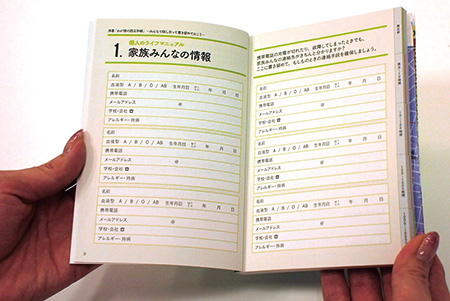 個人のライフマニュアル
1. 家族みんなの情報
名前
血液型 A / B / O / AB 生年月日 年 月 日
携帯電話
メールアドレス @
学校・会社
アレルギー・持病
名前
血液型 A / B / O / AB 生年月日 年 月 日
携帯電話
メールアドレス @
学校・会社
アレルギー・持病
名前
血液型 A / B / O / AB 生年月日 年 月 日
携帯電話
メールアドレス @
学校・会社
アレルギー・持病
携帯電話の充電が切れたり、故障してしまったときでも、
家族みんなの連絡先がきちんと分かりますか?
ここに書き留めて、もしものときの連絡手段を確保しましょう。
名前
血液型 A / B / O / AB 生年月日 年 月 日
携帯電話
メールアドレス @
学校・会社
アレルギー・持病
名前
血液型 A / B / O / AB 生年月日 年 月 日
携帯電話
メールアドレス @
学校・会社
アレルギー・持病
名前
血液型 A / B / O / AB 生年月日 年 月 日
携帯電話
メールアドレス @
学校・会社
アレルギー・持病